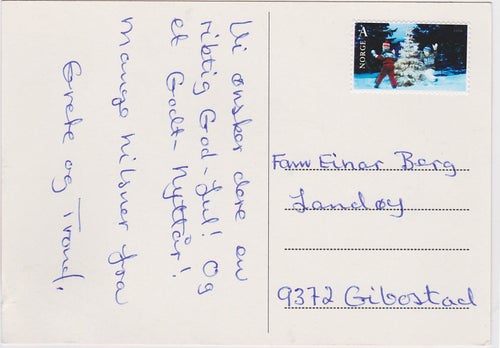 Vi ønsker dere en
riktig God-Jul! Og
et Godt-Nyttår!
Mange hilsner fra
Grete og Trond.
NORGE A
Fam Einar Berg
Landøy
9372 Gibostad